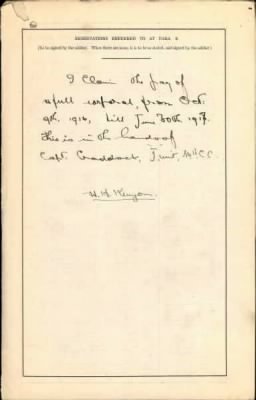 RESERVATIONS REFERRED TO AT PARA. 4
(To be signed by the soldier. When there are none, it is to be stated, and signed by the soldier.)
I Claim the pay of
a full corporal, from Oct.
9th. 1916, till June 30th. 1917.
This is in the hands of
Capt. Craddock,
H. H. Kenyon